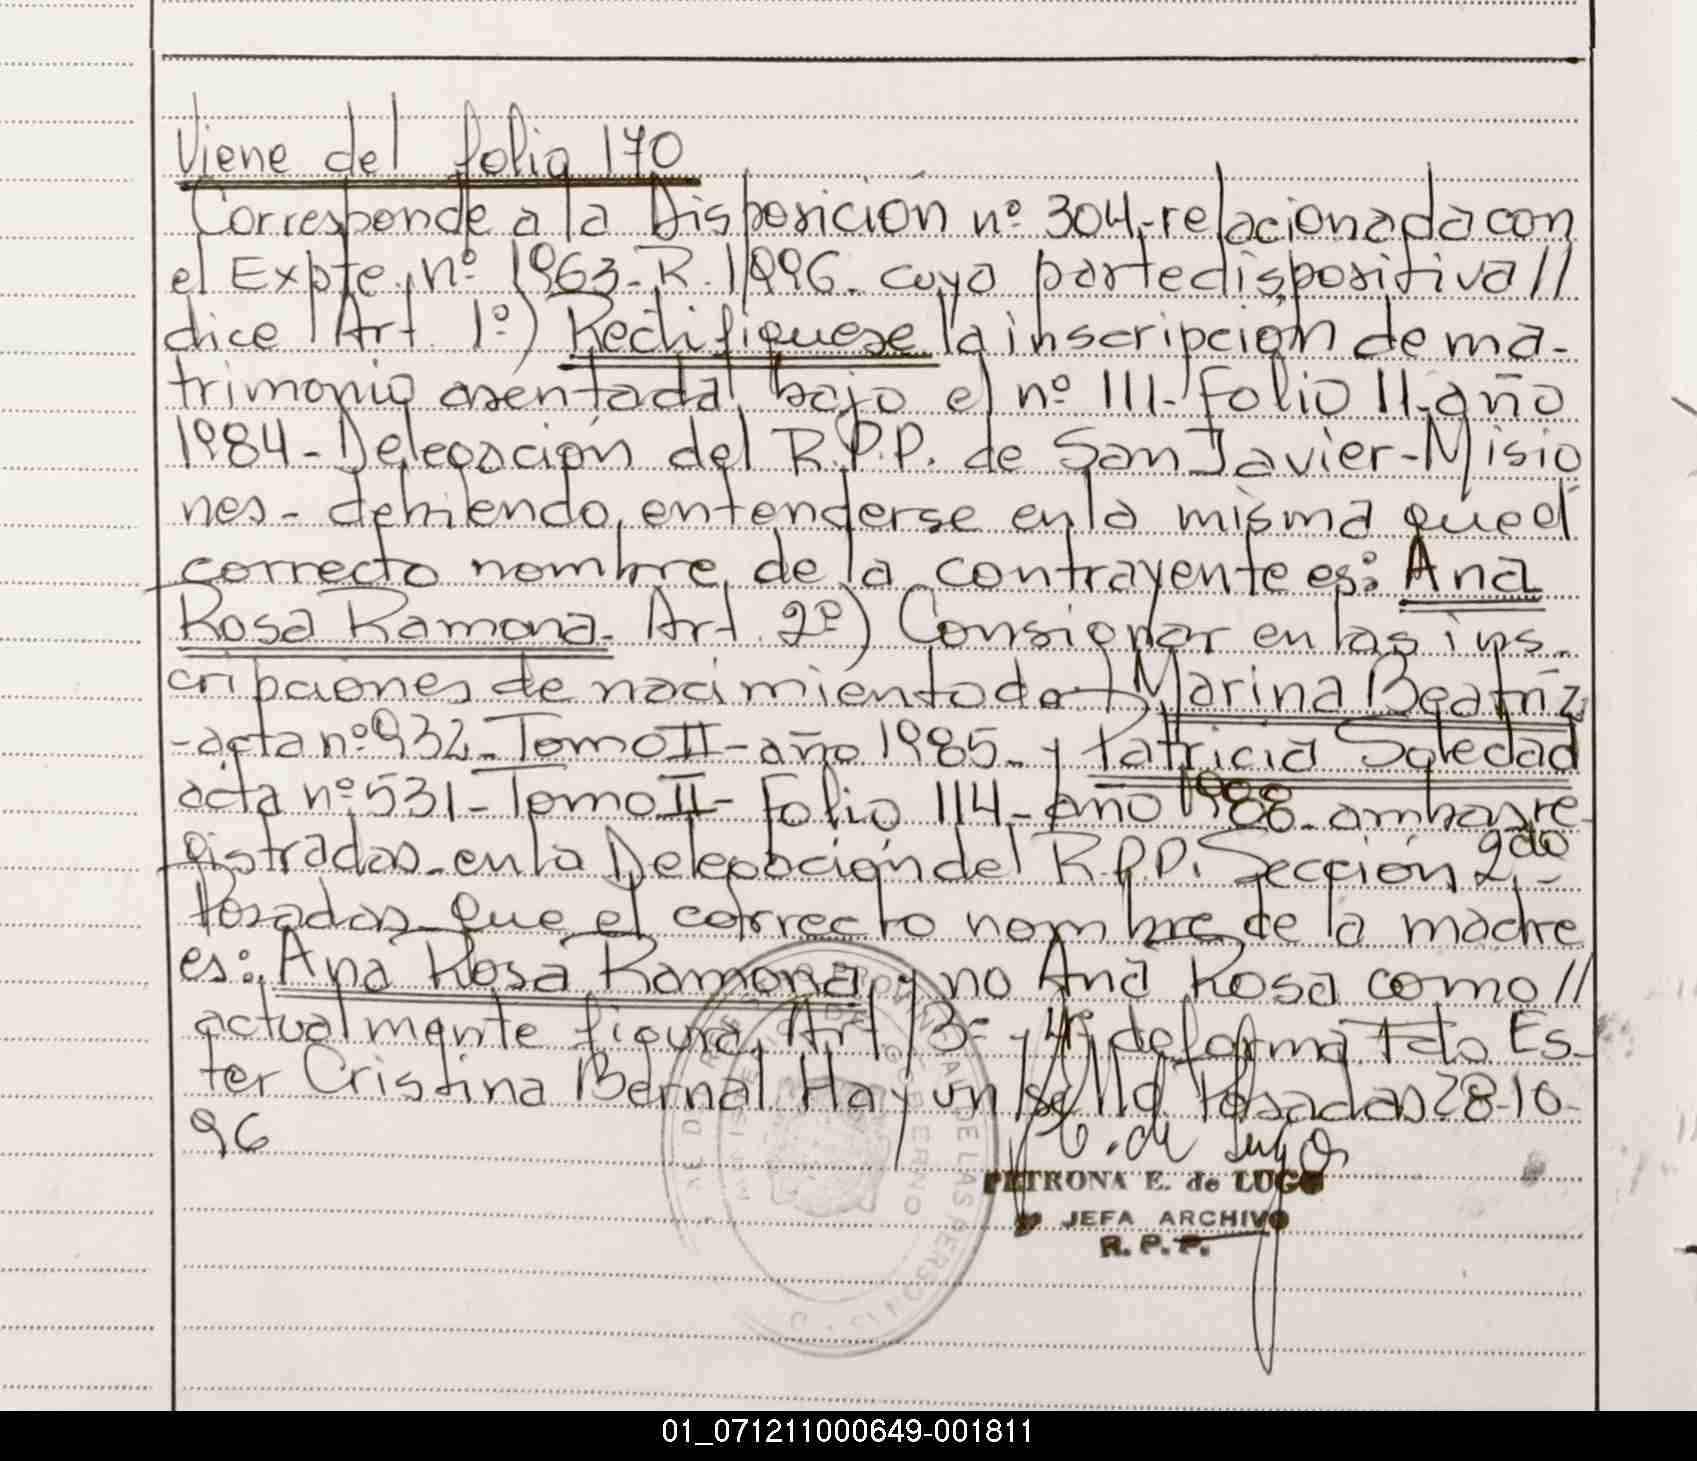 Viene del folio 170
Corresponde a la Disposición nº 304-relacionada con
el Expte. nº 1963-R. 1996. cuya parte dispositiva //
dice Art. 1º) Rectifiquese la inscripción de ma-
trimonio asentada bajo el nº 111-Folio 11-año
1984-Delegación del R.P.P. de San Javier-Misio
nes- debiendo entenderse en la misma que el
correcto nombre de la contrayente es: Ana
Rosa Ramona. Art. 2º) Consignar en las ins-
cripciones de nacimiento de Marina Beatriz
-acta nº 932-Tomo II-año 1985- y Patricia Soledad
acta nº 531-Tomo II- Folio 114-año 1988-ambas re
gistradas-en la Delegación del R.P.P. Sección 2da-
Posadas-que el correcto nombre de la madre
es: Ana Rosa Ramona y no Ana Rosa como //
actualmente figura. Art 3º y 4º de forma Fdo Es-
ter Cristina Bernal. Hay un sello. Posadas 28-10-
96
PETRONA E. de LUGO
JEFA ARCHIVO
R. P. P.
01_071211000649-001811